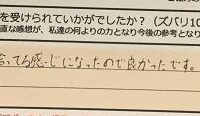 を受けられていかがでしたか？（ズバリ10
直な感想が、私達の何よりの力となり今後の参考となり
ってる感じになったので良かったです。